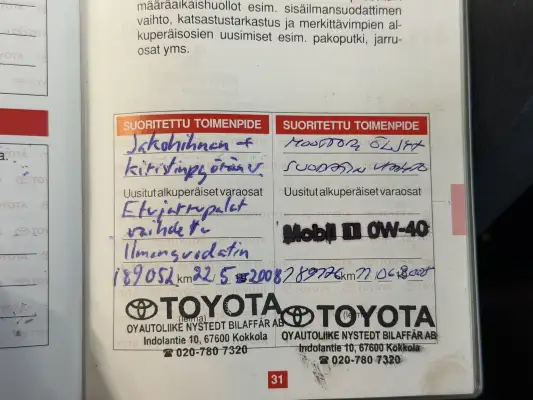 määräaikaishuollot esim. sisäilmansuodattimen
vaihto, katsastustarkastus ja merkittävimpien al-
kuperäisosien uusimiset esim. pakoputki, jarru-
osat yms.
SUORITETTU TOIMENPIDE
Jakohihnan +
kiristinpyörän v.
Uusitut alkuperäiset varaosat
Etujarrupalat
vaihdettu
Ilmansuodatin
189052 km 22.5 2008
TOYOTA
(leima)
OY AUTOLIIKE NYSTEDT BILAFFÄR AB
Indolantie 10, 67600 Kokkola
☎ 020-780 7320
SUORITETTU TOIMENPIDE
MOOTTORI ÖLJYT
SUODATIN VAIHTO
Uusitut alkuperäiset varaosat
Mobil 1 0W-40
km
TOYOTA
(leima)
OY AUTOLIIKE NYSTEDT BILAFFÄR AB
Indolantie 10, 67600 Kokkola
☎ 020-780 7320
31
a.